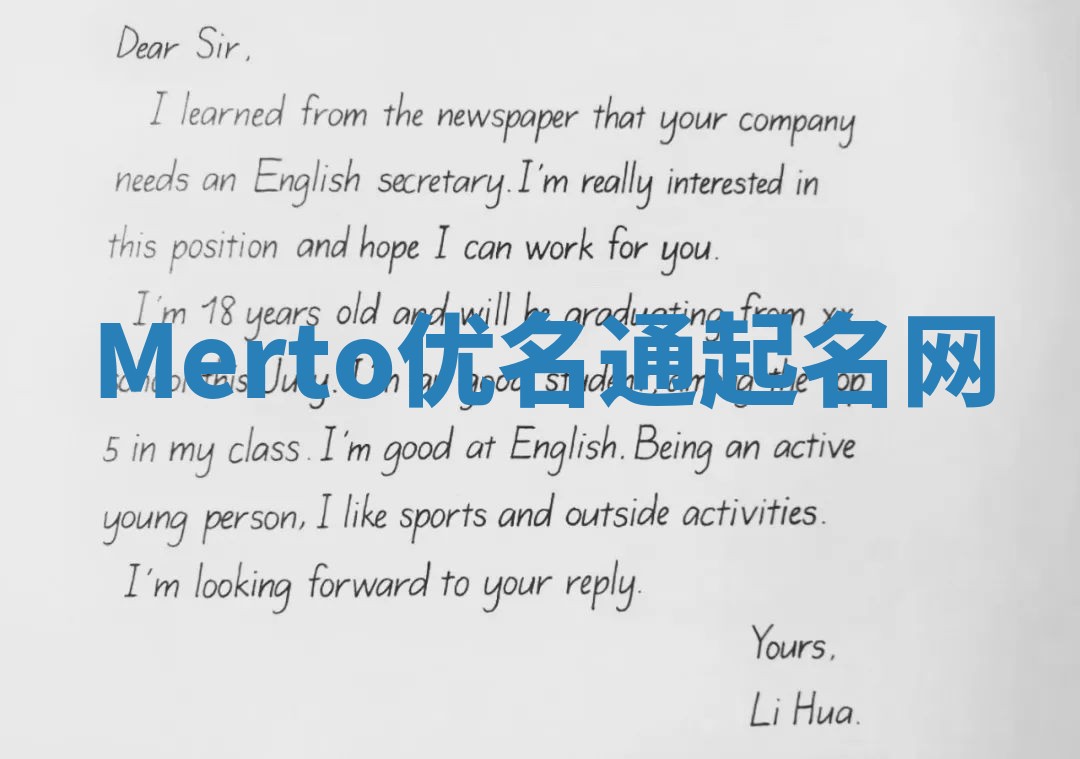 Dear Sir,
I learned from the newspaper that your company
needs an English secretary. I'm really interested in
this position and hope I can work for you.
I'm 18 years old and will be graduating from xx
Merto优名通起名网
school this July. I'm a good student, among the top
5 in my class. I'm good at English. Being an active
young person, I like sports and outside activities.
I'm looking forward to your reply.
Yours,
Li Hua.